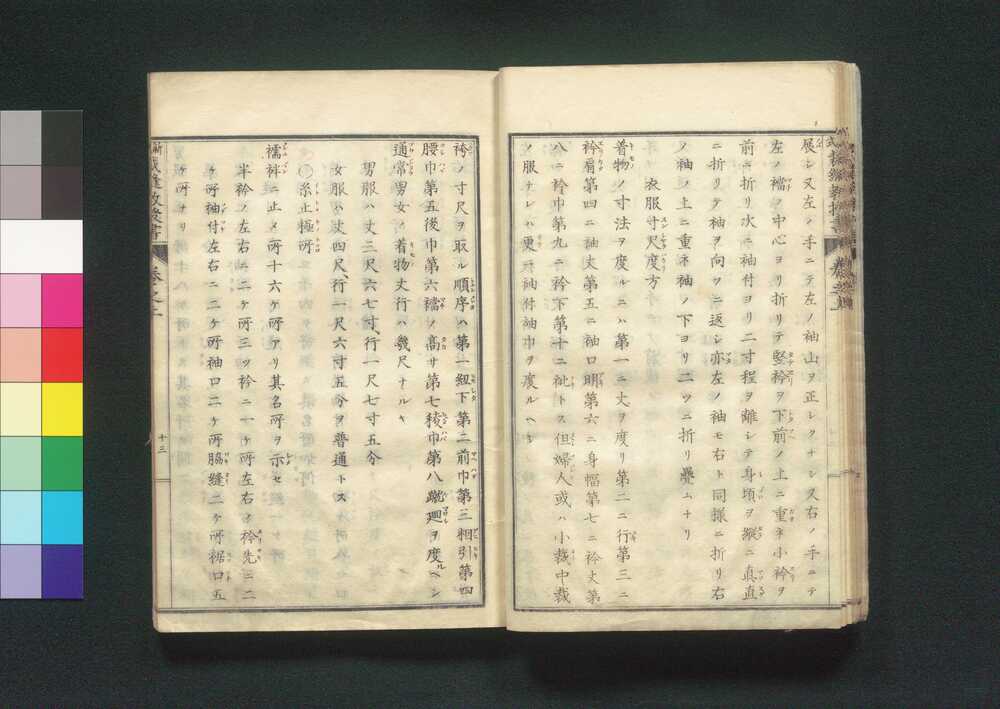 展シ又左ノ手ニテ左ノ袖山ヲ正シクナシ又右ノ手ニテ
左ノ襠ノ中心ヨリ折リテ竪衿ヲ下前ノ上ニ重ネ小衿ヲ
前ニ折リ次ニ袖付ヨリ二寸程ヲ離シテ身頃ヲ縱ニ真直
ニ折リテ袖ヲ向フニ返シ亦左ノ袖モ右ト同様ニ折リ右
ノ袖ノ上ニ重ネ袖ノ下ヨリ二ツニ折リ疊ムナリ
衣服寸尺度方
着物ノ寸法ヲ度ルニハ第一ニ丈ヲ度リ第二ニ行第三ニ
衿肩第四ニ袖丈第五ニ袖口明第六ニ身幅第七ニ衿丈第
八ニ衿巾第九ニ衿下第十ニ袘トス但婦人或ハ小裁中裁
ノ服ナレハ更ニ袖付袖巾ヲ度ルヘシ
袴ノ寸尺ヲ取ル順序ハ第一紐下第二前巾第三相引第四
腰巾第五後巾第六襠ノ高サ第七䙆巾第八蹴廻ヲ度ルヘシ
通常男女ノ着物丈行ハ幾尺ナルヤ
男服ハ丈三尺六七寸、行一尺七寸五分
女服ハ丈四尺、行一尺六寸五分ヲ普通トス
糸止極所
襦袢ニ止メ所十六ケ所アリ其名所ヲ示セ
半衿ノ左右ニ二ケ所三ツ衿ニ一ケ所左右ノ衿先ニ二
ケ所袖付左右ニ二ケ所袖口二ケ所脇縫二ケ所裾口五
ケ所ナリ
十三